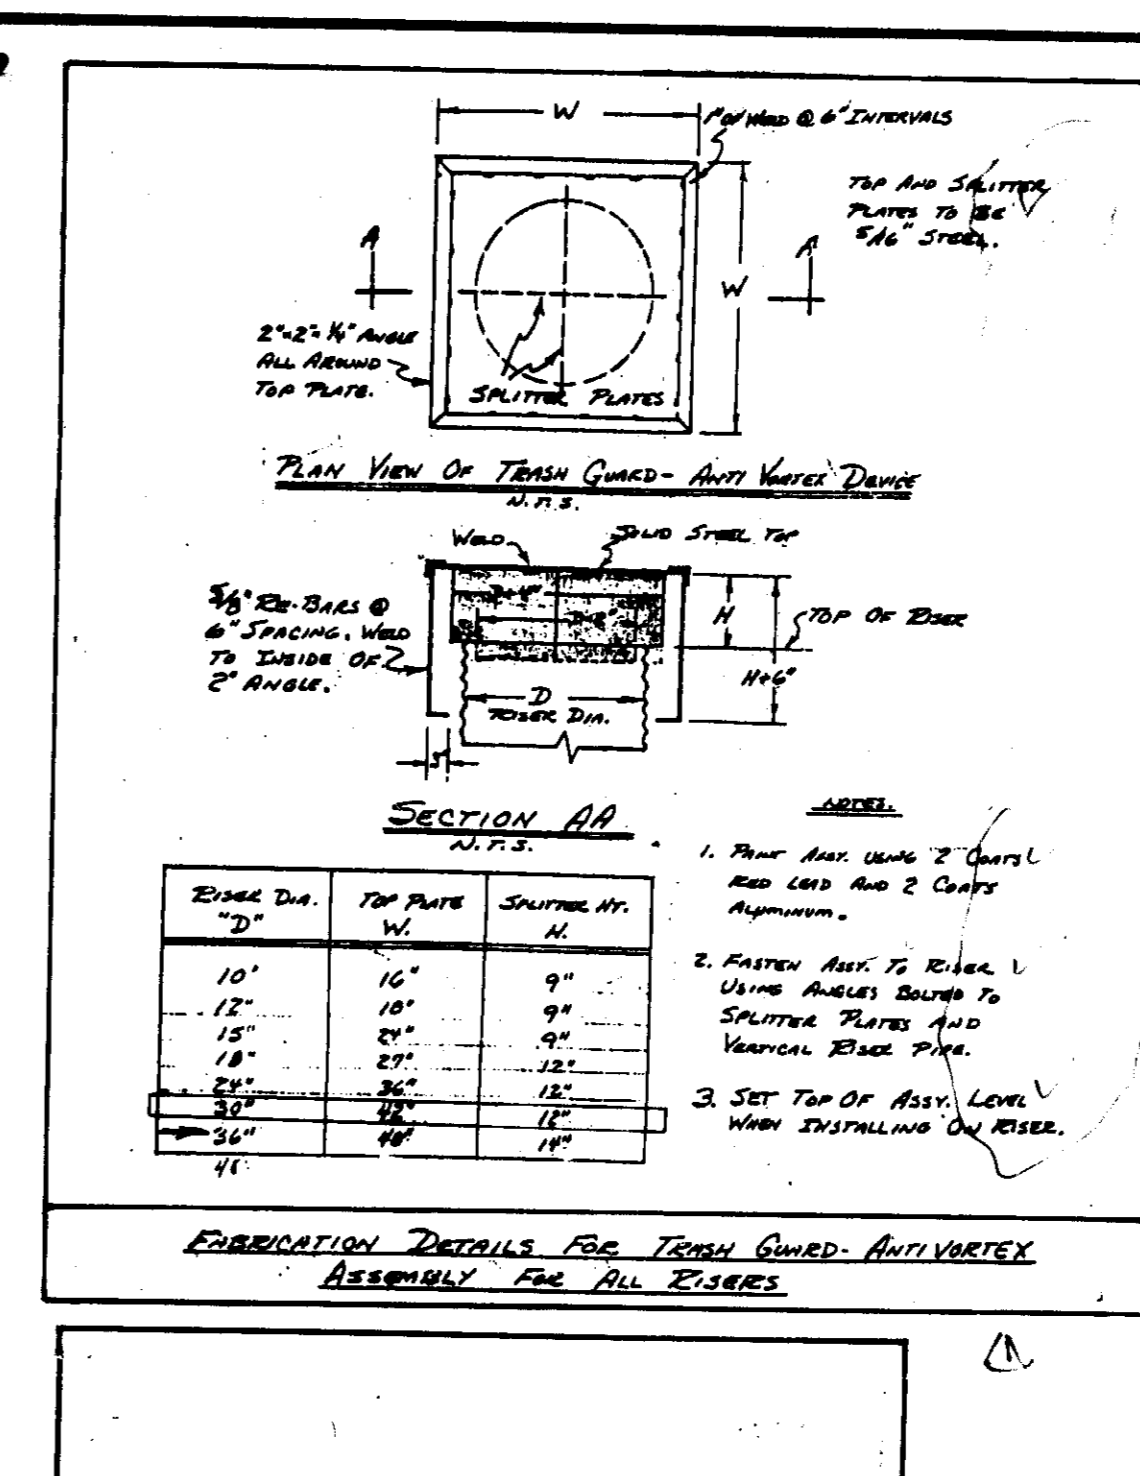 W
1" OF WELD @ 6" INTERVALS
TOP AND SPLITTER
PLATES TO BE
5/16" STEEL.
A
A
W
2"x2"x1/4" ANGLE
ALL AROUND
TOP PLATE.
SPLITTER PLATES
PLAN VIEW OF TRASH GUARD - ANTI VORTEX DEVICE
N.T.S.
WELD
SOLID STEEL TOP
5/8" RE-BARS @
6" SPACING. WELD
TO INSIDE OF
2" ANGLE.
D+4"
H
TOP OF RISER
H+6"
D
RISER DIA.
SECTION AA
N.T.S.
RISER DIA. "D" TOP PLATE W. SPLITTER HT. H.
10" 16" 9"
12" 18" 9"
15" 24" 9"
18" 27" 12"
24" 36" 12"
30" 42" 12"
36" 48" 14"
48
NOTES.
1. PAINT ASSY. USING 2 COATS
RED LEAD AND 2 COATS
ALUMINUM.
2. FASTEN ASSY. TO RISER
USING ANGLES BOLTED TO
SPLITTER PLATES AND
VERTICAL RISER PIPE.
3. SET TOP OF ASSY. LEVEL
WHEN INSTALLING ON RISER.
FABRICATION DETAILS FOR TRASH GUARD - ANTI VORTEX
ASSEMBLY FOR ALL RISERS